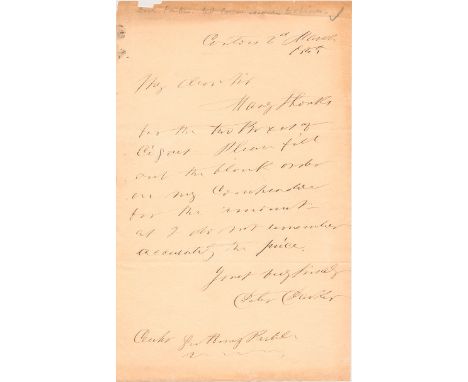 Canton 2d March
1855
My dear Sir
Many thanks
for the two Boxes of
Cigars. Please fill
out the blank order
on my Comprador
for the amount
as I do not remember
accurately the price.
Yours very Sincerely
Peter Parker